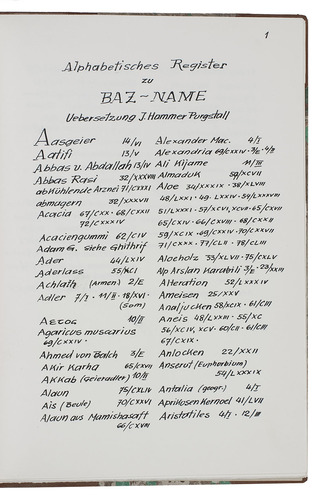 1
Alphabetisches Register
zu
BAZ-NAME
Uebersetzung J. Hammer Purgstall
Aasgeier 14/VI
Aatifi 13/V
Abbas u. Abdallah 13/IV
Abbas Rasi 32/XXXVIII
abkühlende Arznei 71/CXXXI
abmagern 32/XXXVII
Acacia 67/CXX · 68/CXXII
72/CXXXIV
Acaciengummi 62/CIV
Adam G. siehe Ghithrif
Ader 44/LXIV
Aderlass 55/XCI
Achlath (Armen) 2/E
Adler 7/I · 11/II · 18/XVI ·
(Som)
Αετος 10/II
Agaricus muscarius
69/CXXIV ·
Ahmed von Balch 3/E
Akir Karha 65/CXVII
AKKab (Geieradler) 10/II
Alaun 75/CXLIV
Als (Beule) 70/CXXVI
Alaun aus Mamishasaft
66/CXVIII
Alexander Mac. 4/I
Alexandria 69/CXXIV
Ali Kijame 11/III
Almaduk 59/XCVII
Aloe 34/XXXIX · 38/XLVIII
48/LXXI · 49 · LXXIV · 54/LXXXVIII
51/LXXXI · 57/XCVI, XCVII · 65/CXVII
65/CXIV · 66/CXVIII · 68/CXXII
59/XCIX · 69/CXXIV · 70/CXXVII
71/CXXX · 77/CLII · 78/CLIII
Aloeholz 33/XLVII · 75/CXLV
Alp Arslan Karabili
Alteration 52/LXXXIV
Ameisen 25/XXV
Analjucken 58/XCIX · 61/CIII
Aneis 48/LXXIII · 55/XC
56/XCIV, XCV · 60/CII · 61/CIII
67/CXIX ·
Anlocken 22/XXII
Anserut (Euphorbium)
54/LXXXIX
Antalia (geogr.) 4/I
Aprikosen Kernoel 41/LVII
Aristotiles 4/I · 12/III